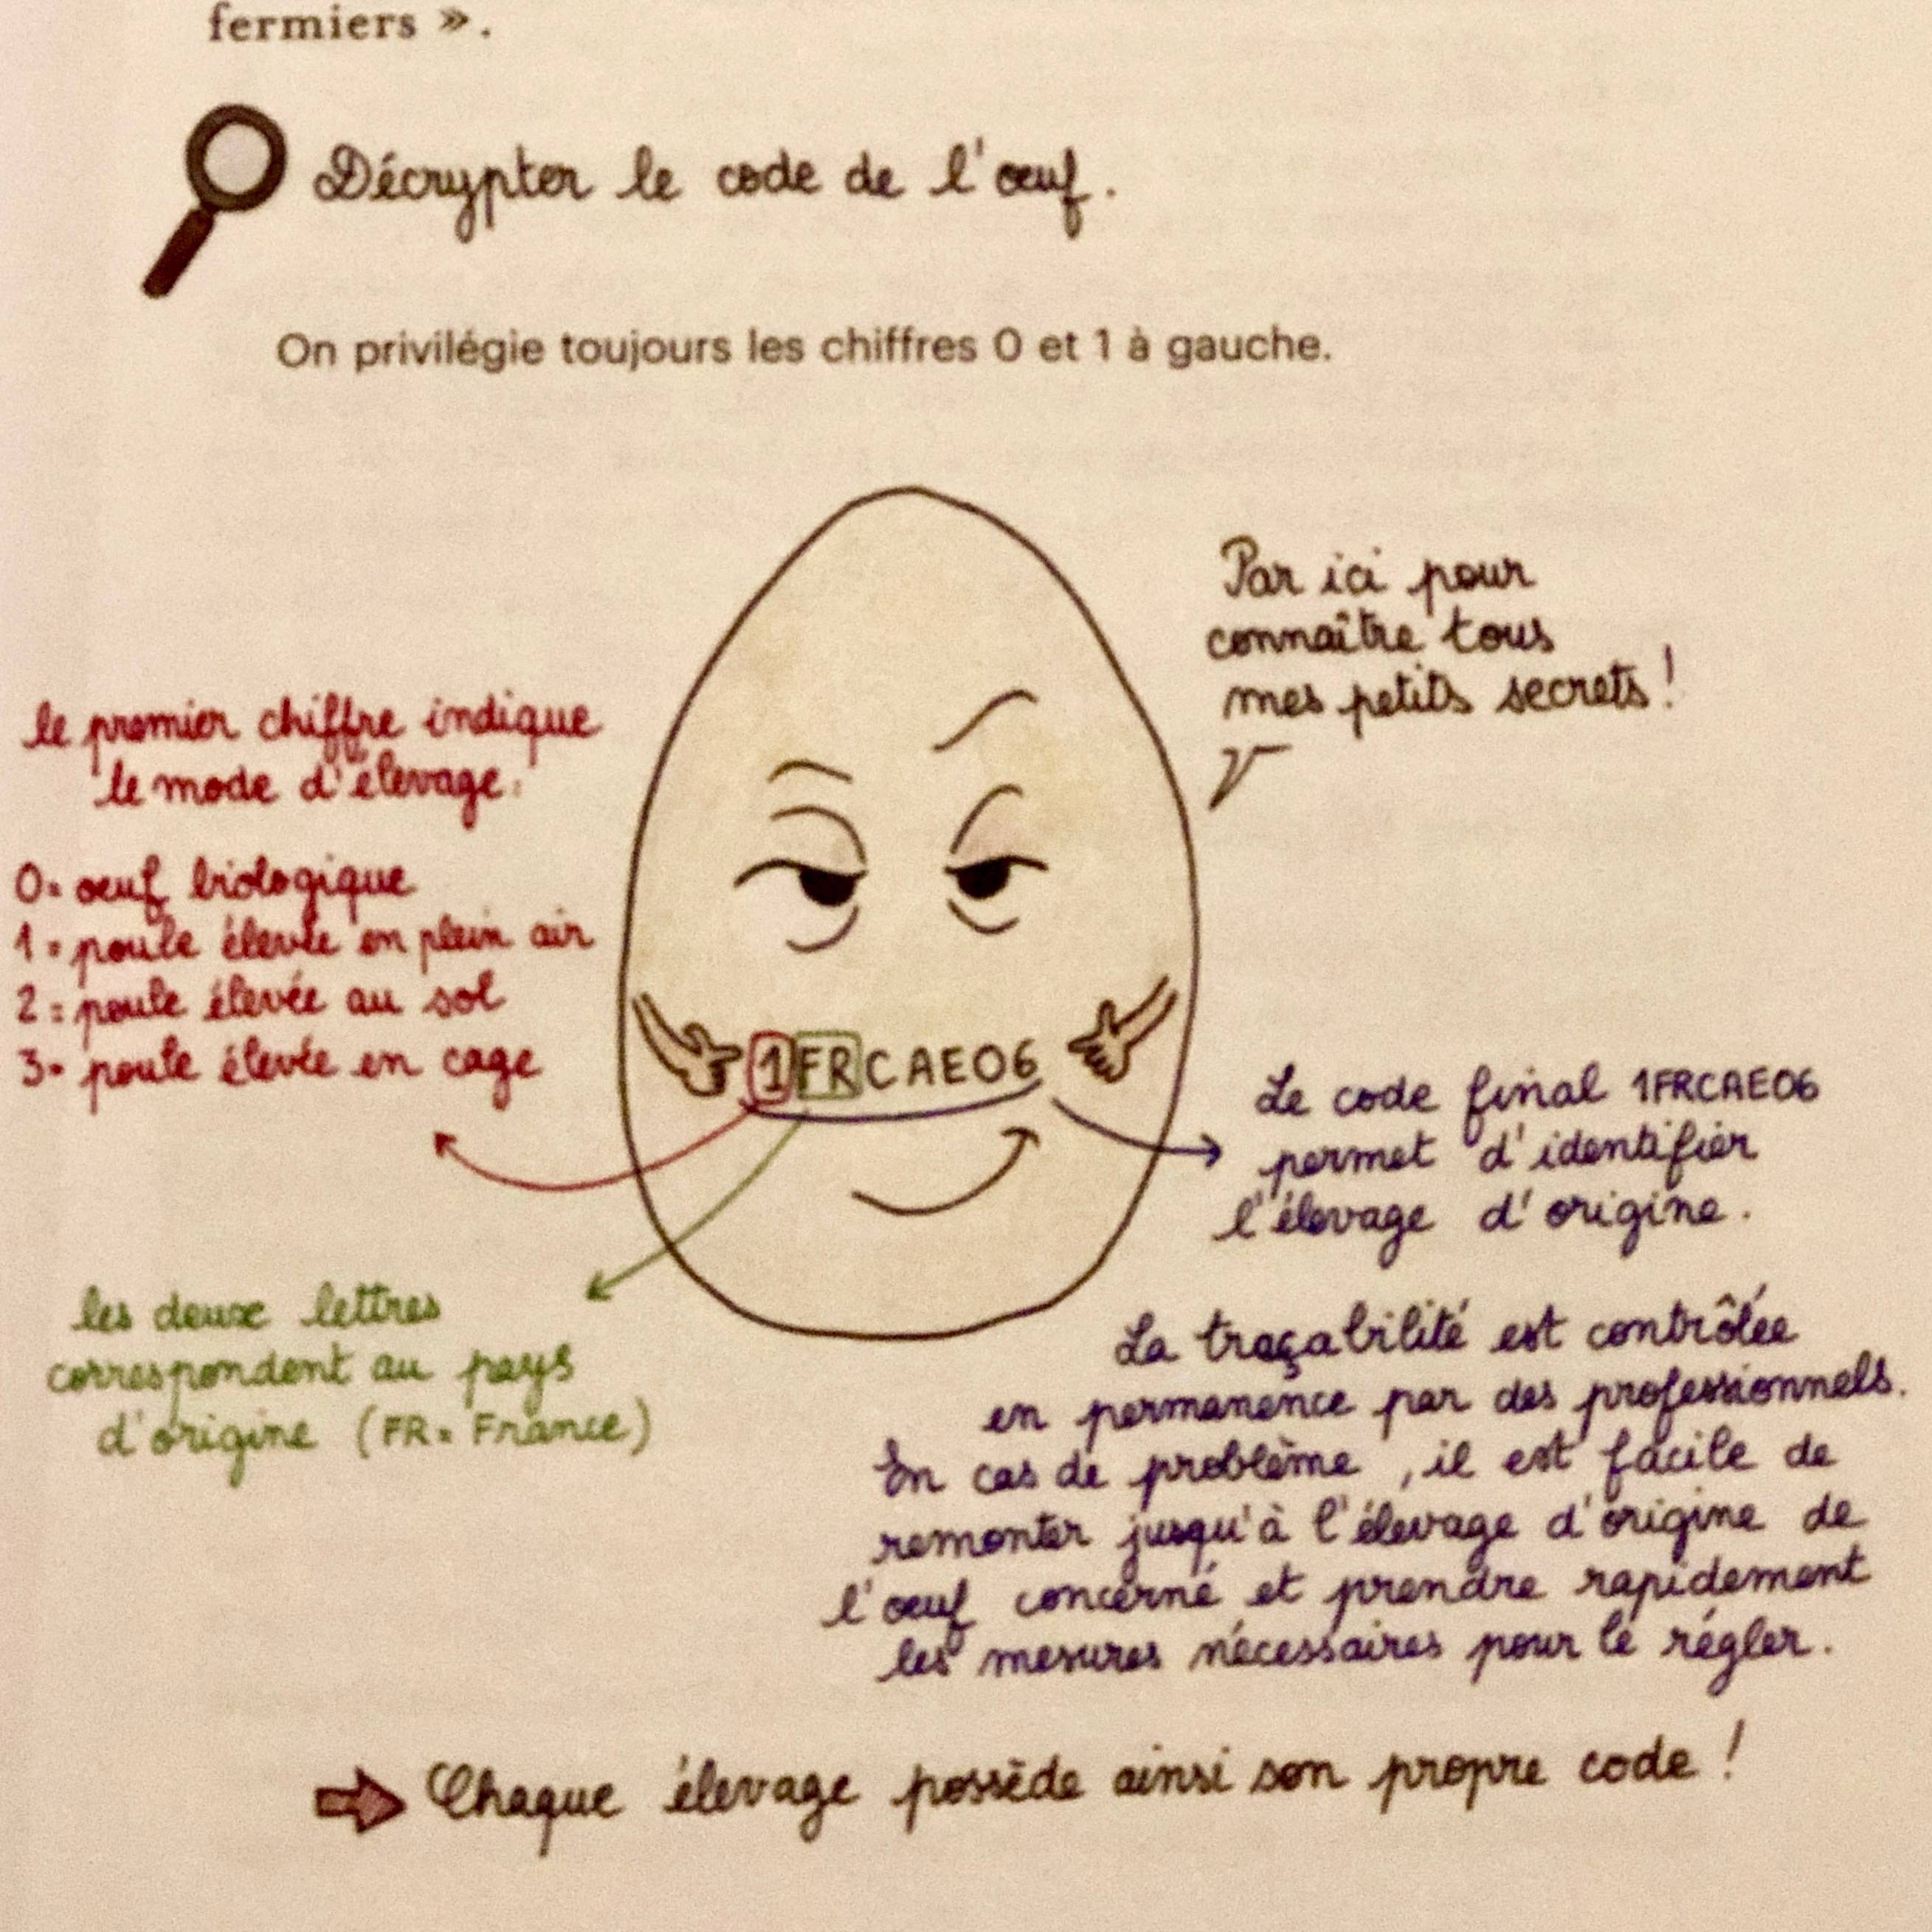 fermiers ».
Décrypter le code de l'œuf.
On privilégie toujours les chiffres 0 et 1 à gauche.
Par ici pour
connaître tous
mes petits secrets !
le premier chiffre indique
le mode d'élevage :
0= œuf biologique
1= poule élevée en plein air
2= poule élevée au sol
3= poule élevée en cage
1FRCAE06
Le code final 1FRCAE06
permet d'identifier
l'élevage d'origine.
les deux lettres
correspondent au pays
d'origine (FR= France)
La traçabilité est contrôlée
en permanence par des professionnels.
En cas de problème, il est facile de
remonter jusqu'à l'élevage d'origine de
l'œuf concerné et prendre rapidement
les mesures nécessaires pour le régler.
Chaque élevage possède ainsi son propre code !